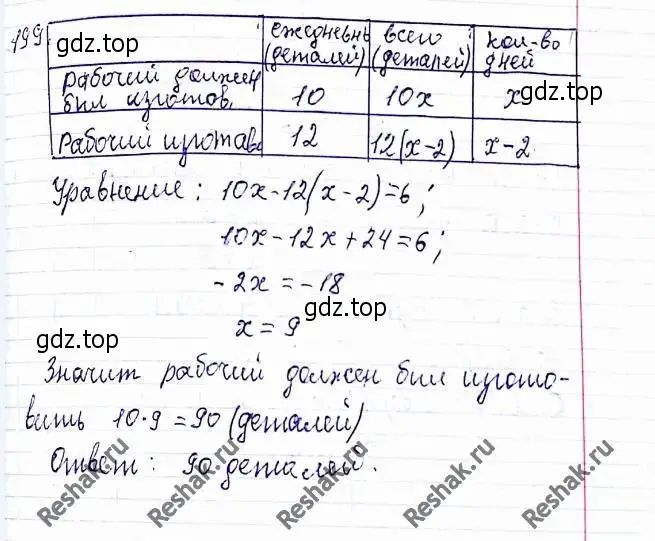 499
ежедневн (деталей) всего (деталей) кол-во дней
рабочий должен был изготов. 10 10x x
Рабочий изготав. 12 12(x-2) x-2
Уравнение: 10x-12(x-2)=6;
10x-12x+24=6;
-2x=-18
x=9
Значит рабочий должен был изгото-
вить 10·9=90 (деталей)
Ответ: 90 деталей.
gdz.top
gdz.top
gdz.top
gdz.top
gdz.top
Reshak.ru
Reshak.ru
Reshak.ru
Reshak.ru